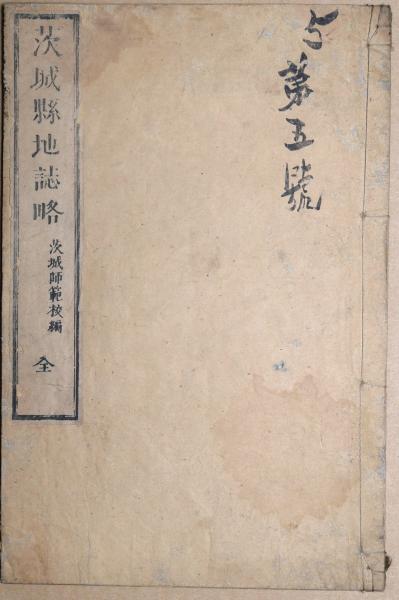 ち第五號
茨城縣地誌略
茨城師範校編
全